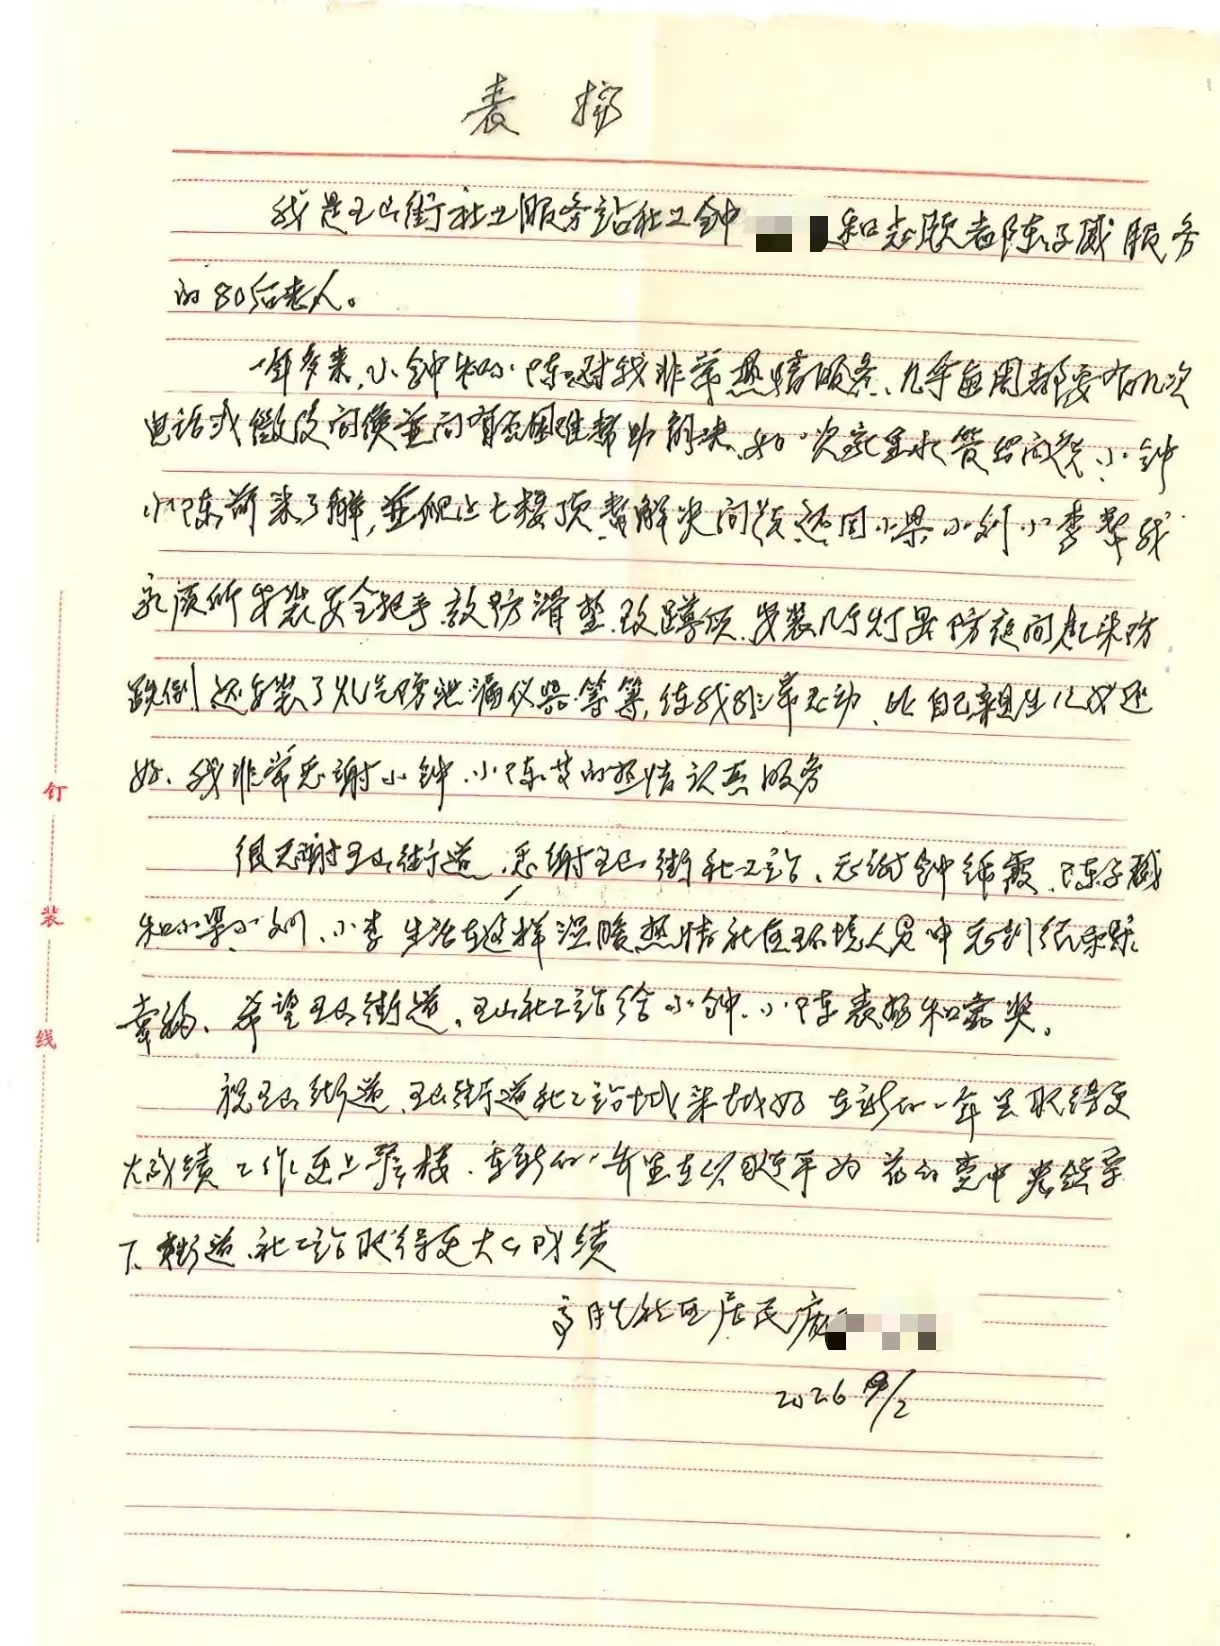 表扬
我是玉山街社工服务站社工钟 和志愿者陈子威服务
的80后老人。
一年多来,小钟和小陈对我非常热情服务、几乎每周都要有几次
电话或微信问候并问有否困难帮助解决、如一次家里水管出问题、小钟
小陈前来了解,并爬上七楼顶帮解决问题还同小梁小刘小李帮我
家厕所安装安全把手、放防滑垫、改蹲位、安装厅灯是防夜间起床防
跌倒还安装了煤气防泄漏仪器等等,使我非常感动、比自己亲生儿女还
好、我非常感谢小钟、小陈等的热情认真服务
很感谢玉山街道、感谢玉山街社工站、感谢钟 霞、陈子威
和小梁小刘、小李生活在这样温暖热情社区环境人员中感到很
幸福、希望玉山街道、玉山社工站给小钟、小陈表扬和嘉奖。
祝玉山街道、玉山街道社工站越来越好在新的一年里取得更
大成绩工作更上一层楼、在新的一年里在以 为 的党中央领导
下、街道、社工站取得更大的成绩
社区居民庞
2026 /2
钉
装
线